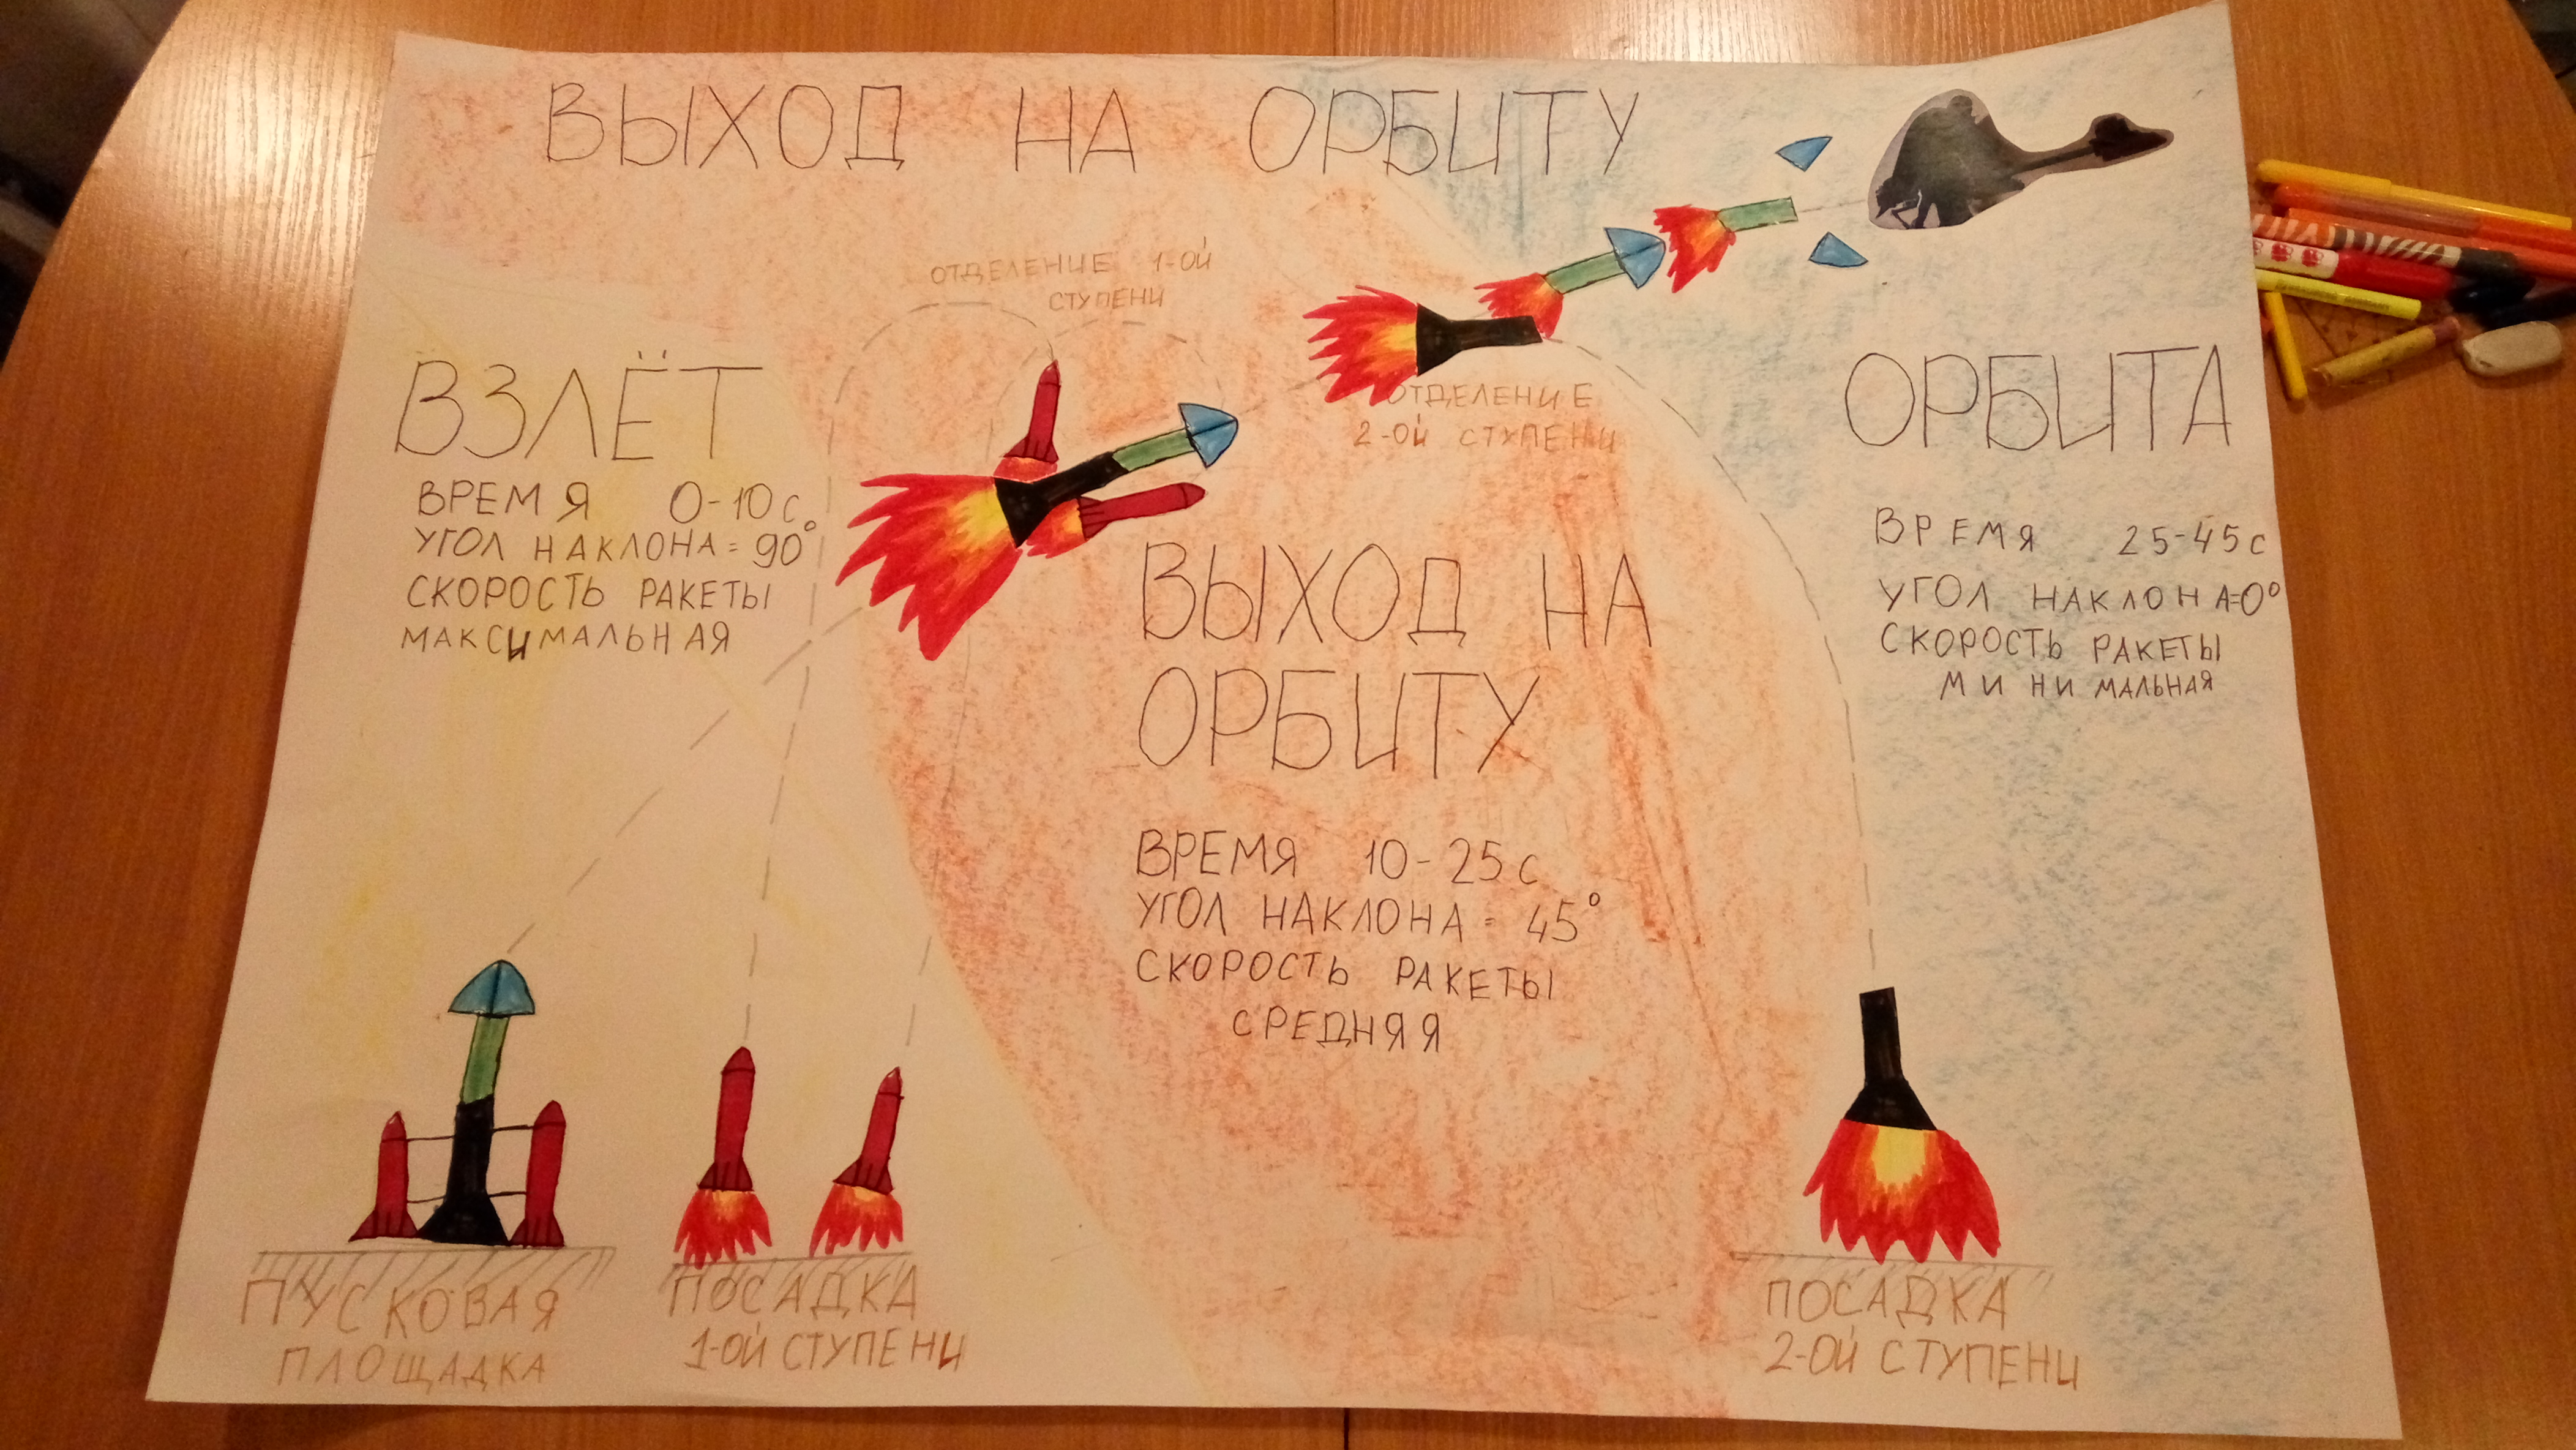 ВЫХОД НА ОРБИТУ
ОТДЕЛЕНИЕ 1-ОЙ
СТУПЕНИ
ВЗЛЁТ
ВРЕМЯ 0-10 С
УГОЛ НАКЛОНА = 90°
СКОРОСТЬ РАКЕТЫ
МАКСИМАЛЬНАЯ
ОТДЕЛЕНИЕ
2-ОЙ СТУПЕНИ
ВЫХОД НА
ОРБИТУ
ВРЕМЯ 10-25 С
УГОЛ НАКЛОНА = 45°
СКОРОСТЬ РАКЕТЫ
СРЕДНЯЯ
ОРБИТА
ВРЕМЯ 25-45 С
УГОЛ НАКЛОНА=0°
СКОРОСТЬ РАКЕТЫ
МИНИМАЛЬНАЯ
ПУСКОВАЯ
ПЛОЩАДКА
ПОСАДКА
1-ОЙ СТУПЕНИ
ПОСАДКА
2-ОЙ СТУПЕНИ